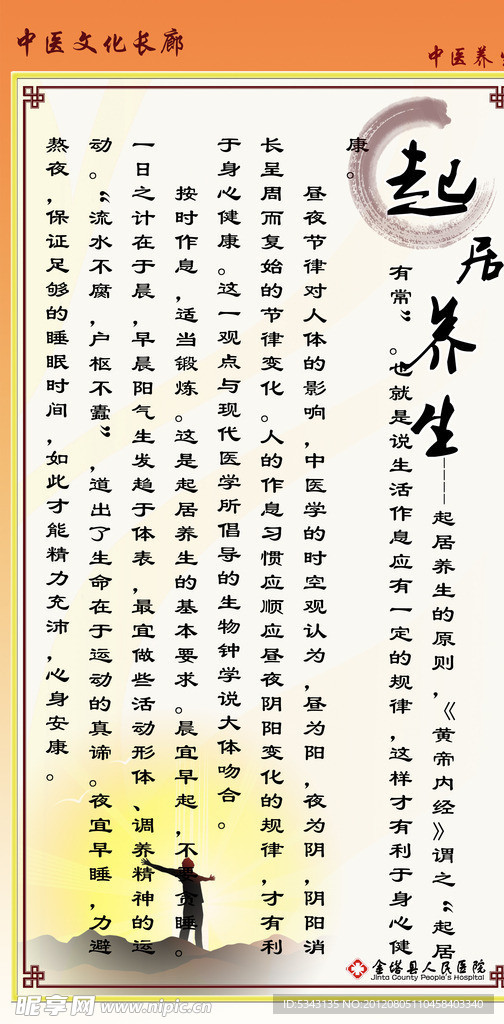 中医文化长廊
中医养生
起居养生
----起居养生的原则，《黄帝内经》谓之“起居
有常”。也就是说生活作息应有一定的规律，这样才有利于身心健
康。
昼夜节律对人体的影响，中医学的时空观认为，昼为阳，夜为阴，阴阳消
长呈周而复始的节律变化。人的作息习惯应顺应昼夜阴阳变化的规律，才有利
于身心健康。这一观点与现代医学所倡导的生物钟学说大体吻合。
按时作息，适当锻炼。这是起居养生的基本要求。晨宜早起，不要贪睡。
一日之计在于晨，早晨阳气生发趋于体表，最宜做些活动形体、调养精神的运
动。“流水不腐，户枢不蠹”，道出了生命在于运动的真谛。夜宜早睡，力避
熬夜，保证足够的睡眠时间，如此才能精力充沛，心身安康。
金塔县人民医院
Jinta County People's Hospital
昵享网 www.nipic.cn
ID:5343135 NO.20120805110458403340